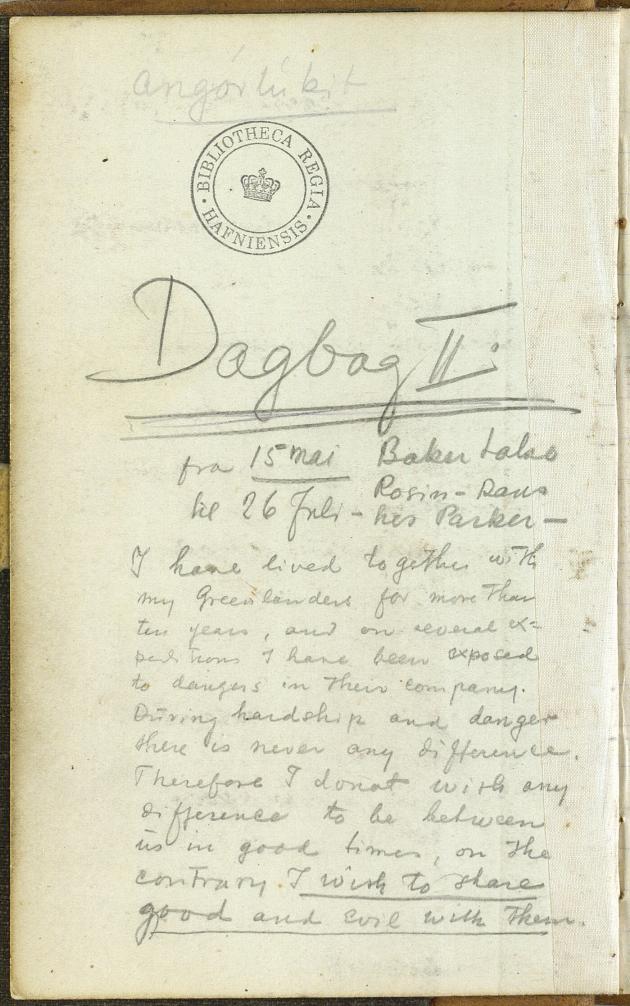 angorlúkit
BIBLIOTHECA REGIA
HAFNIENSIS
Dagbog II:
fra 15 mai Baker Lake
til 26 Juli - hos Parker -
I have lived together with
my Greenlanders for more than
ten years, and on several ex=
peditions I have been exposed
to dangers in their company.
During hardship and danger
there is never any difference.
Therefore I donot wish any
difference to be between
us in good times, on the
contrary I wish to share
good and evil with them.